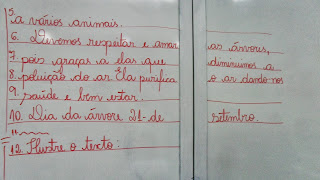 5.
a vários animais.
6. Devemos respeitar e amar as árvores,
7. pois graças a elas que diminuimos a
8. poluição do ar Ela purifica o ar dando-nos
9. saúde e bem estar.
10. Dia da árvore 21-de setembro.
11.
12. Ilustre o texto: